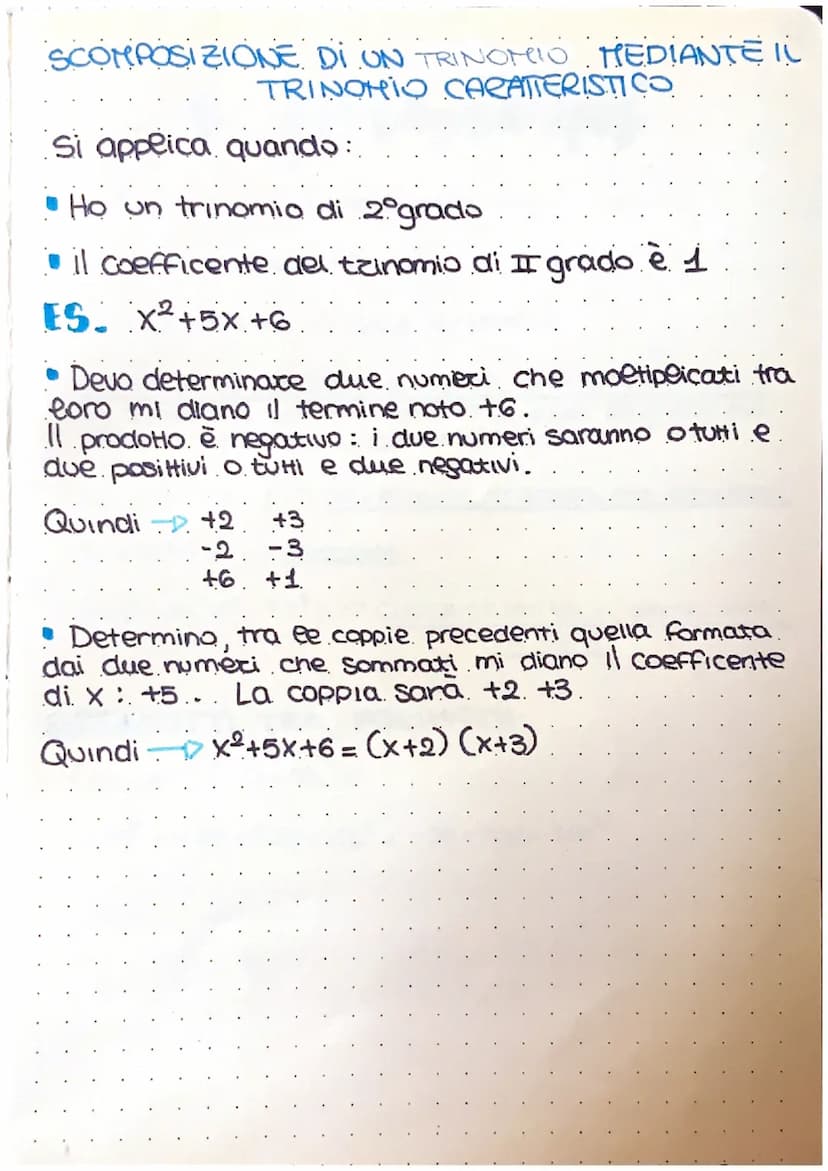 SCOMPOSIZIONE DI UN TRINOMIO MEDIANTE IL
TRINOMIO CARATTERISTICO
Si applica quando:
Ho un trinomio di 2° grado
il coefficente del trinomio di II grado è 1
ES. x²+5x+6
Devo determinare due numeri che moltiplicati tra
loro mi diano il termine noto +6.
Il prodotto è negativo: i due numeri saranno o tutti e
due posittivi o tutti e due negativi.
Quindi → +2 +3
-2 -3
+6 +1
Determino, tra le coppie precedenti quella formata
dai due numeri che sommati mi diano il coefficente
di x: +5. La coppia sarà +2 +3
Quindi → x²+5x+6 = (x+2) (x+3)